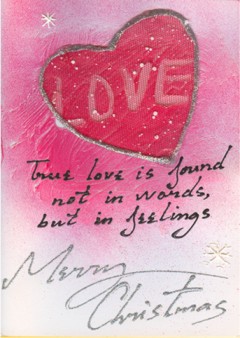 LOVE
True love is found
not in words,
but in feelings
Merry
Christmas